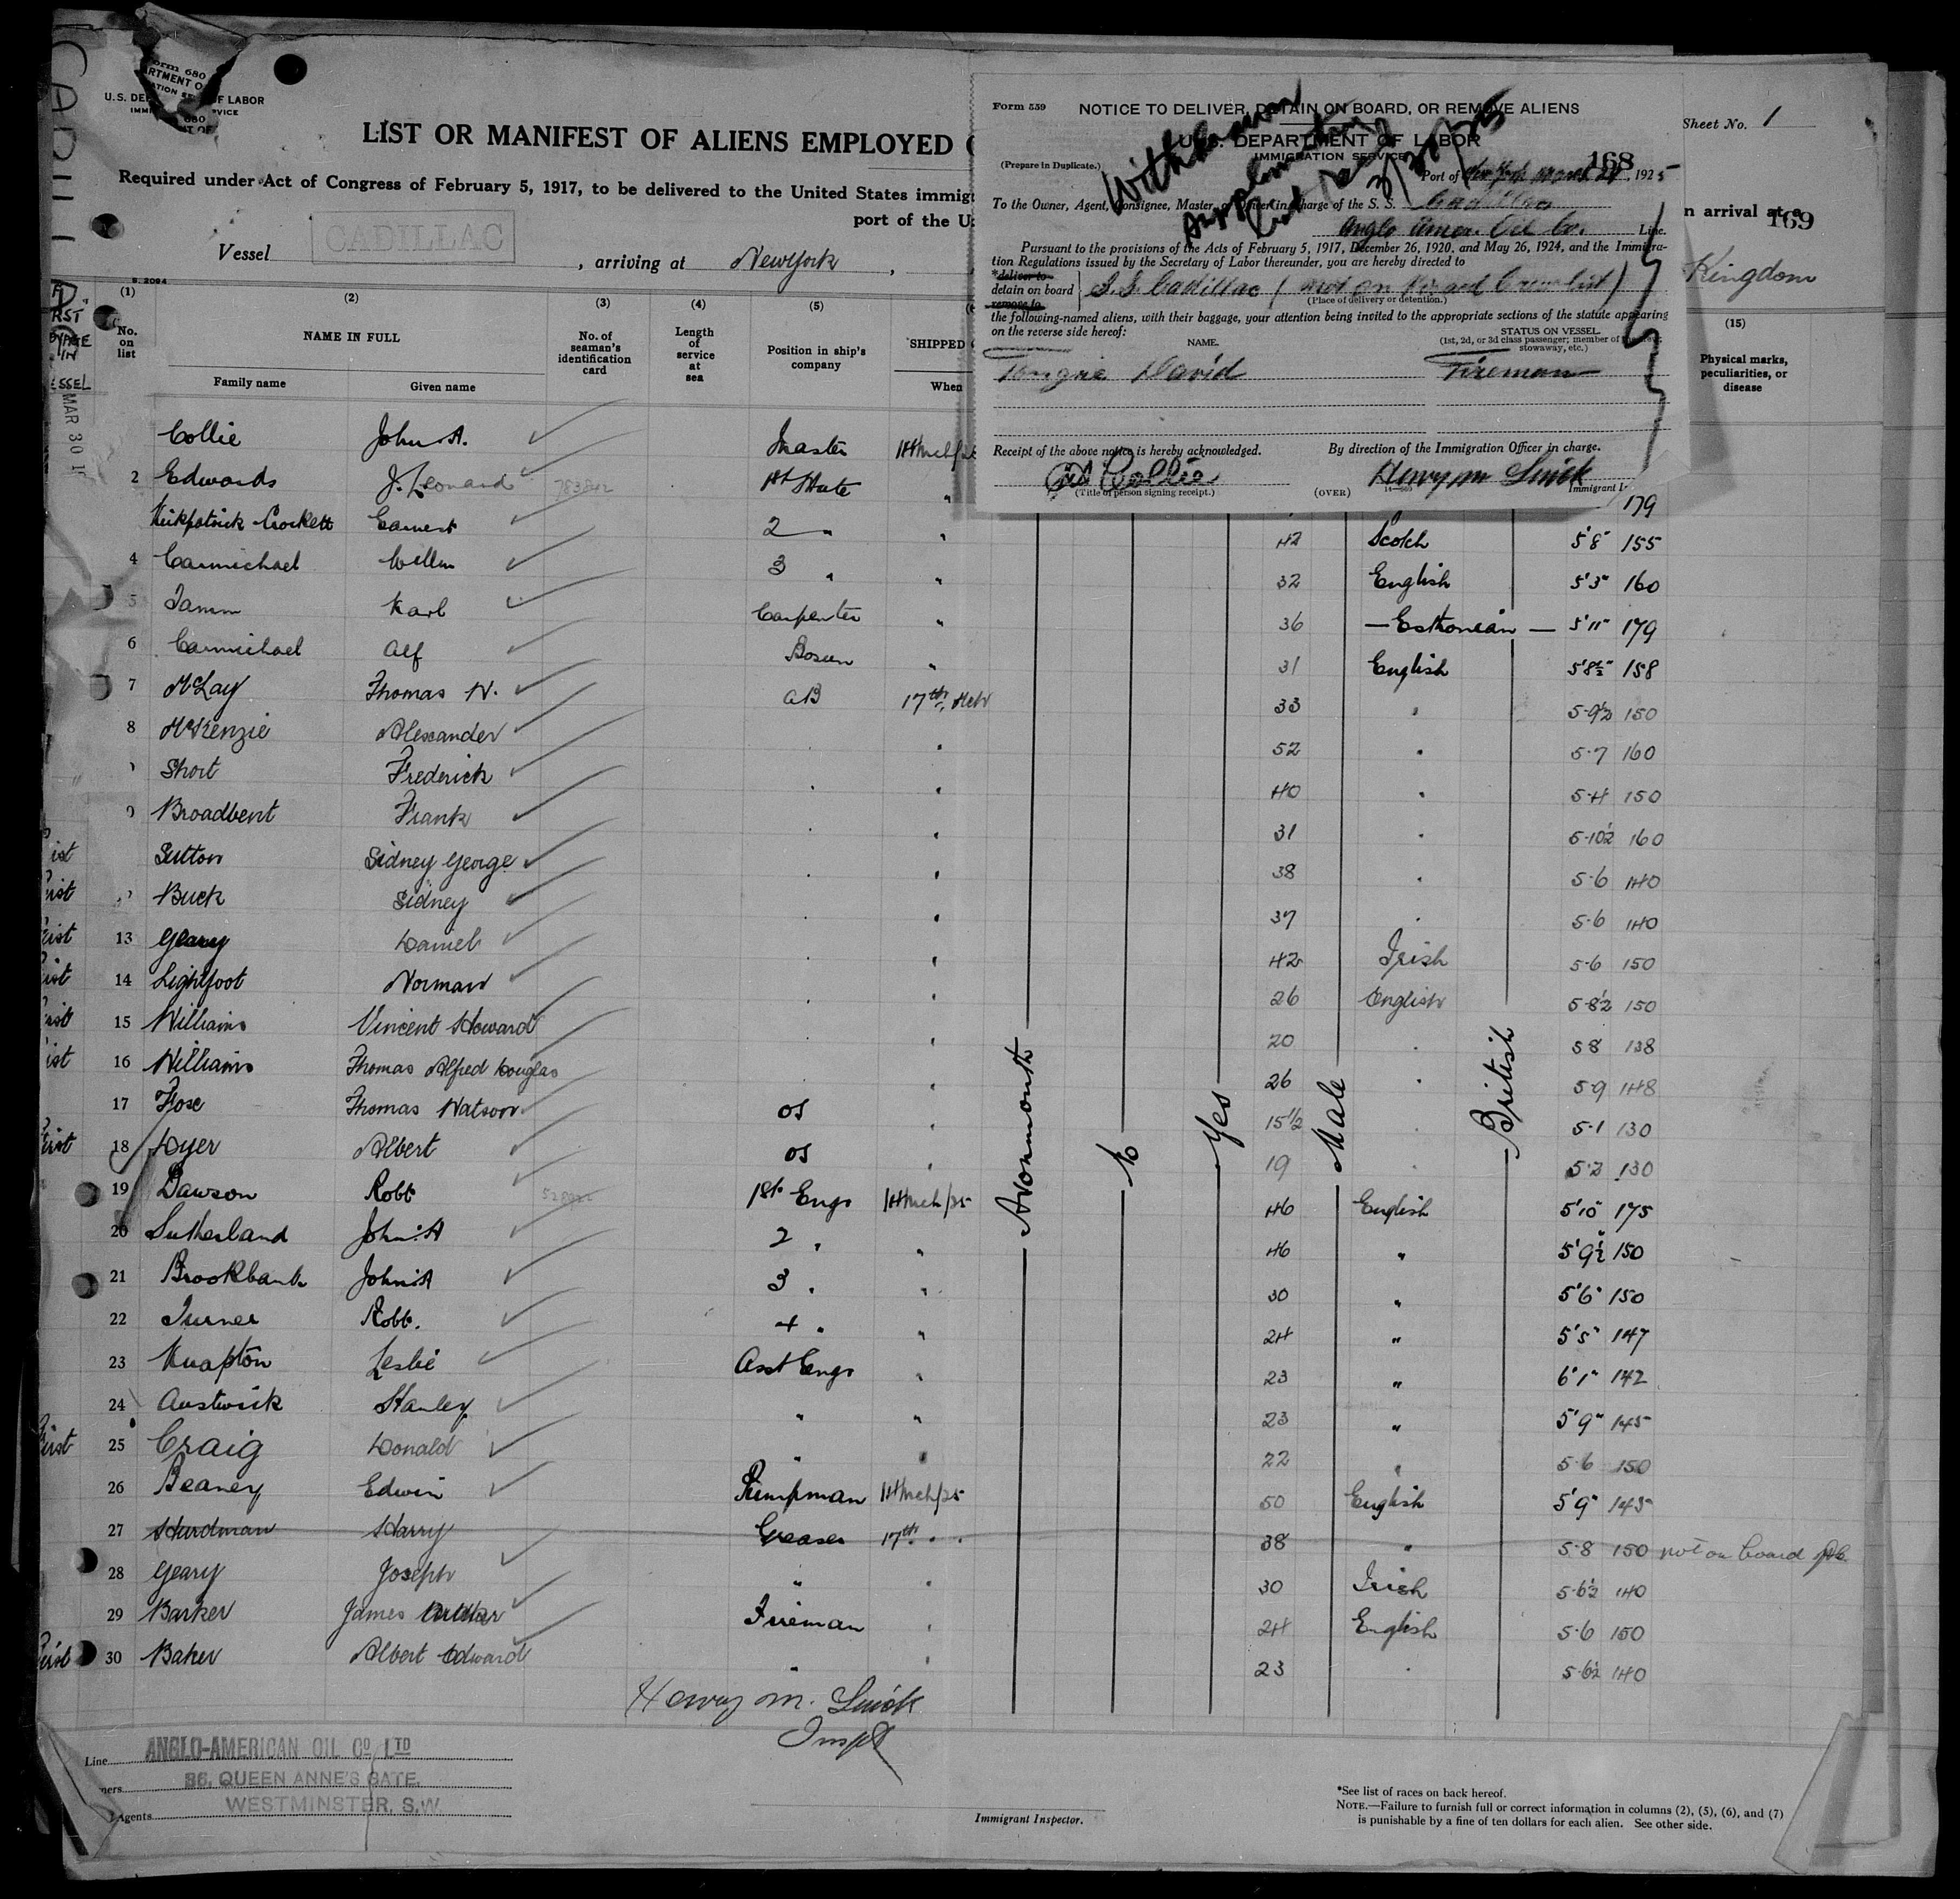 U.S. DEPARTMENT OF LABOR
LIST OR MANIFEST OF ALIENS EMPLOYED
Required under Act of Congress of February 5, 1917, to be delivered to the United States immig
port of the U
Vessel CADILLAC, arriving at New York,
Form 559
NOTICE TO DELIVER, DETAIN ON BOARD, OR REMOVE ALIENS
(Prepare in Duplicate.)
U.S. DEPARTMENT OF LABOR
IMMIGRATION SERVICE
168
Port of New York March 1925
To the Owner, Agent, Consignee, Master, or Officer in Charge of the S. S. Cadillac
Anglo Amer. Oil Co. Line.
Pursuant to the provisions of the Acts of February 5, 1917, December 26, 1920, and May 26, 1924, and the Immigra-
tion Regulations issued by the Secretary of Labor thereunder, you are hereby directed to
*deliver to
detain on board S.S. Cadillac
remove to
(Place of delivery or detention.)
the following-named aliens, with their baggage, your attention being invited to the appropriate sections of the statute appearing
on the reverse side hereof:
NAME.
STATUS ON VESSEL
(1st, 2d, or 3d class passenger; member of crew; stowaway, etc.)
David Fireman
Receipt of the above notice is hereby acknowledged.
By direction of the Immigration Officer in charge.
Collie
Henry M
(Title of person signing receipt.)
(OVER)
Withdrawn
3/30/25
Sheet No. 1
n arrival at a
169
Kingdom
(1) (2) (3) (4) (5) (15)
No. on list
NAME IN FULL
Family name Given name
No. of seaman's identification card
Length of service at sea
Position in ship's company
SHIPPED
When
Physical marks, peculiarities, or disease
MAR 30
Collie John A. Master
2 Edwards J. Leonard 1st Mate " 179
Kirkpatrick Crockett Earnest 2 " " 42 Scotch 5'8" 155
4 Carmichael 3 " " 32 English 5'3" 160
5 Tamm Karl Carpenter " 36 Esthonian 5'11" 179
6 Carmichael Alf Bosun " 31 English 5'8½" 158
7 McLay Thomas AB 17th 33 " 5-9½ 150
8 McKenzie Alexander 52 " 5-7 160
Short Frederick 40 " 5-4 150
Broadbent Frank 31 " 5-10½ 160
Sutton Sidney George 38 " 5-6 140
Buck Sidney 37 " 5-6 140
13 Geary Daniel 42 Irish 5-6 150
14 Lightfoot Norman 26 English 5-8½ 150
15 Williams Vincent Howard 20 " 5-8 138
16 Williams Thomas Alfred Douglas 26 " 5-9 148
17 Thomas Watson OS 15½ " 5-1 130
18 Dyer Albert OS 19 " 5-2 130
19 Dawson Robt 1st Engr 14 Mch/25 46 English 5'10 175
20 Sutherland John A 2 " " 46 " 5'9½ 150
21 Brookbank John A 3 " " 30 " 5'6" 150
22 Turner Robt. 4 " " 24 " 5'5" 147
23 Knapton Leslie Asst Engr " 23 " 6'1" 142
24 Austwick Stanley " " 23 " 5'9" 145
25 Craig Donald " " 22 " 5-6 150
26 Beaney Edwin Pumpman 14 Mch/25 50 English 5'9" 145
27 Hurdman Harry Greaser 17th 38 " 5-8 150 not on board
28 Geary Joseph " 30 Irish 5-6½ 140
29 Barker James Arthur Fireman 24 English 5-6 150
30 Baker Albert Edward " 23 " 5-6½ 140
Avonmouth
Yes
Male
British
Henry M.
Line ANGLO-AMERICAN OIL CO LTD
36, QUEEN ANNE'S GATE,
Agents WESTMINSTER, S.W.
Immigrant Inspector.
*See list of races on back hereof.
NOTE.—Failure to furnish full or correct information in columns (2), (5), (6), and (7)
is punishable by a fine of ten dollars for each alien. See other side.